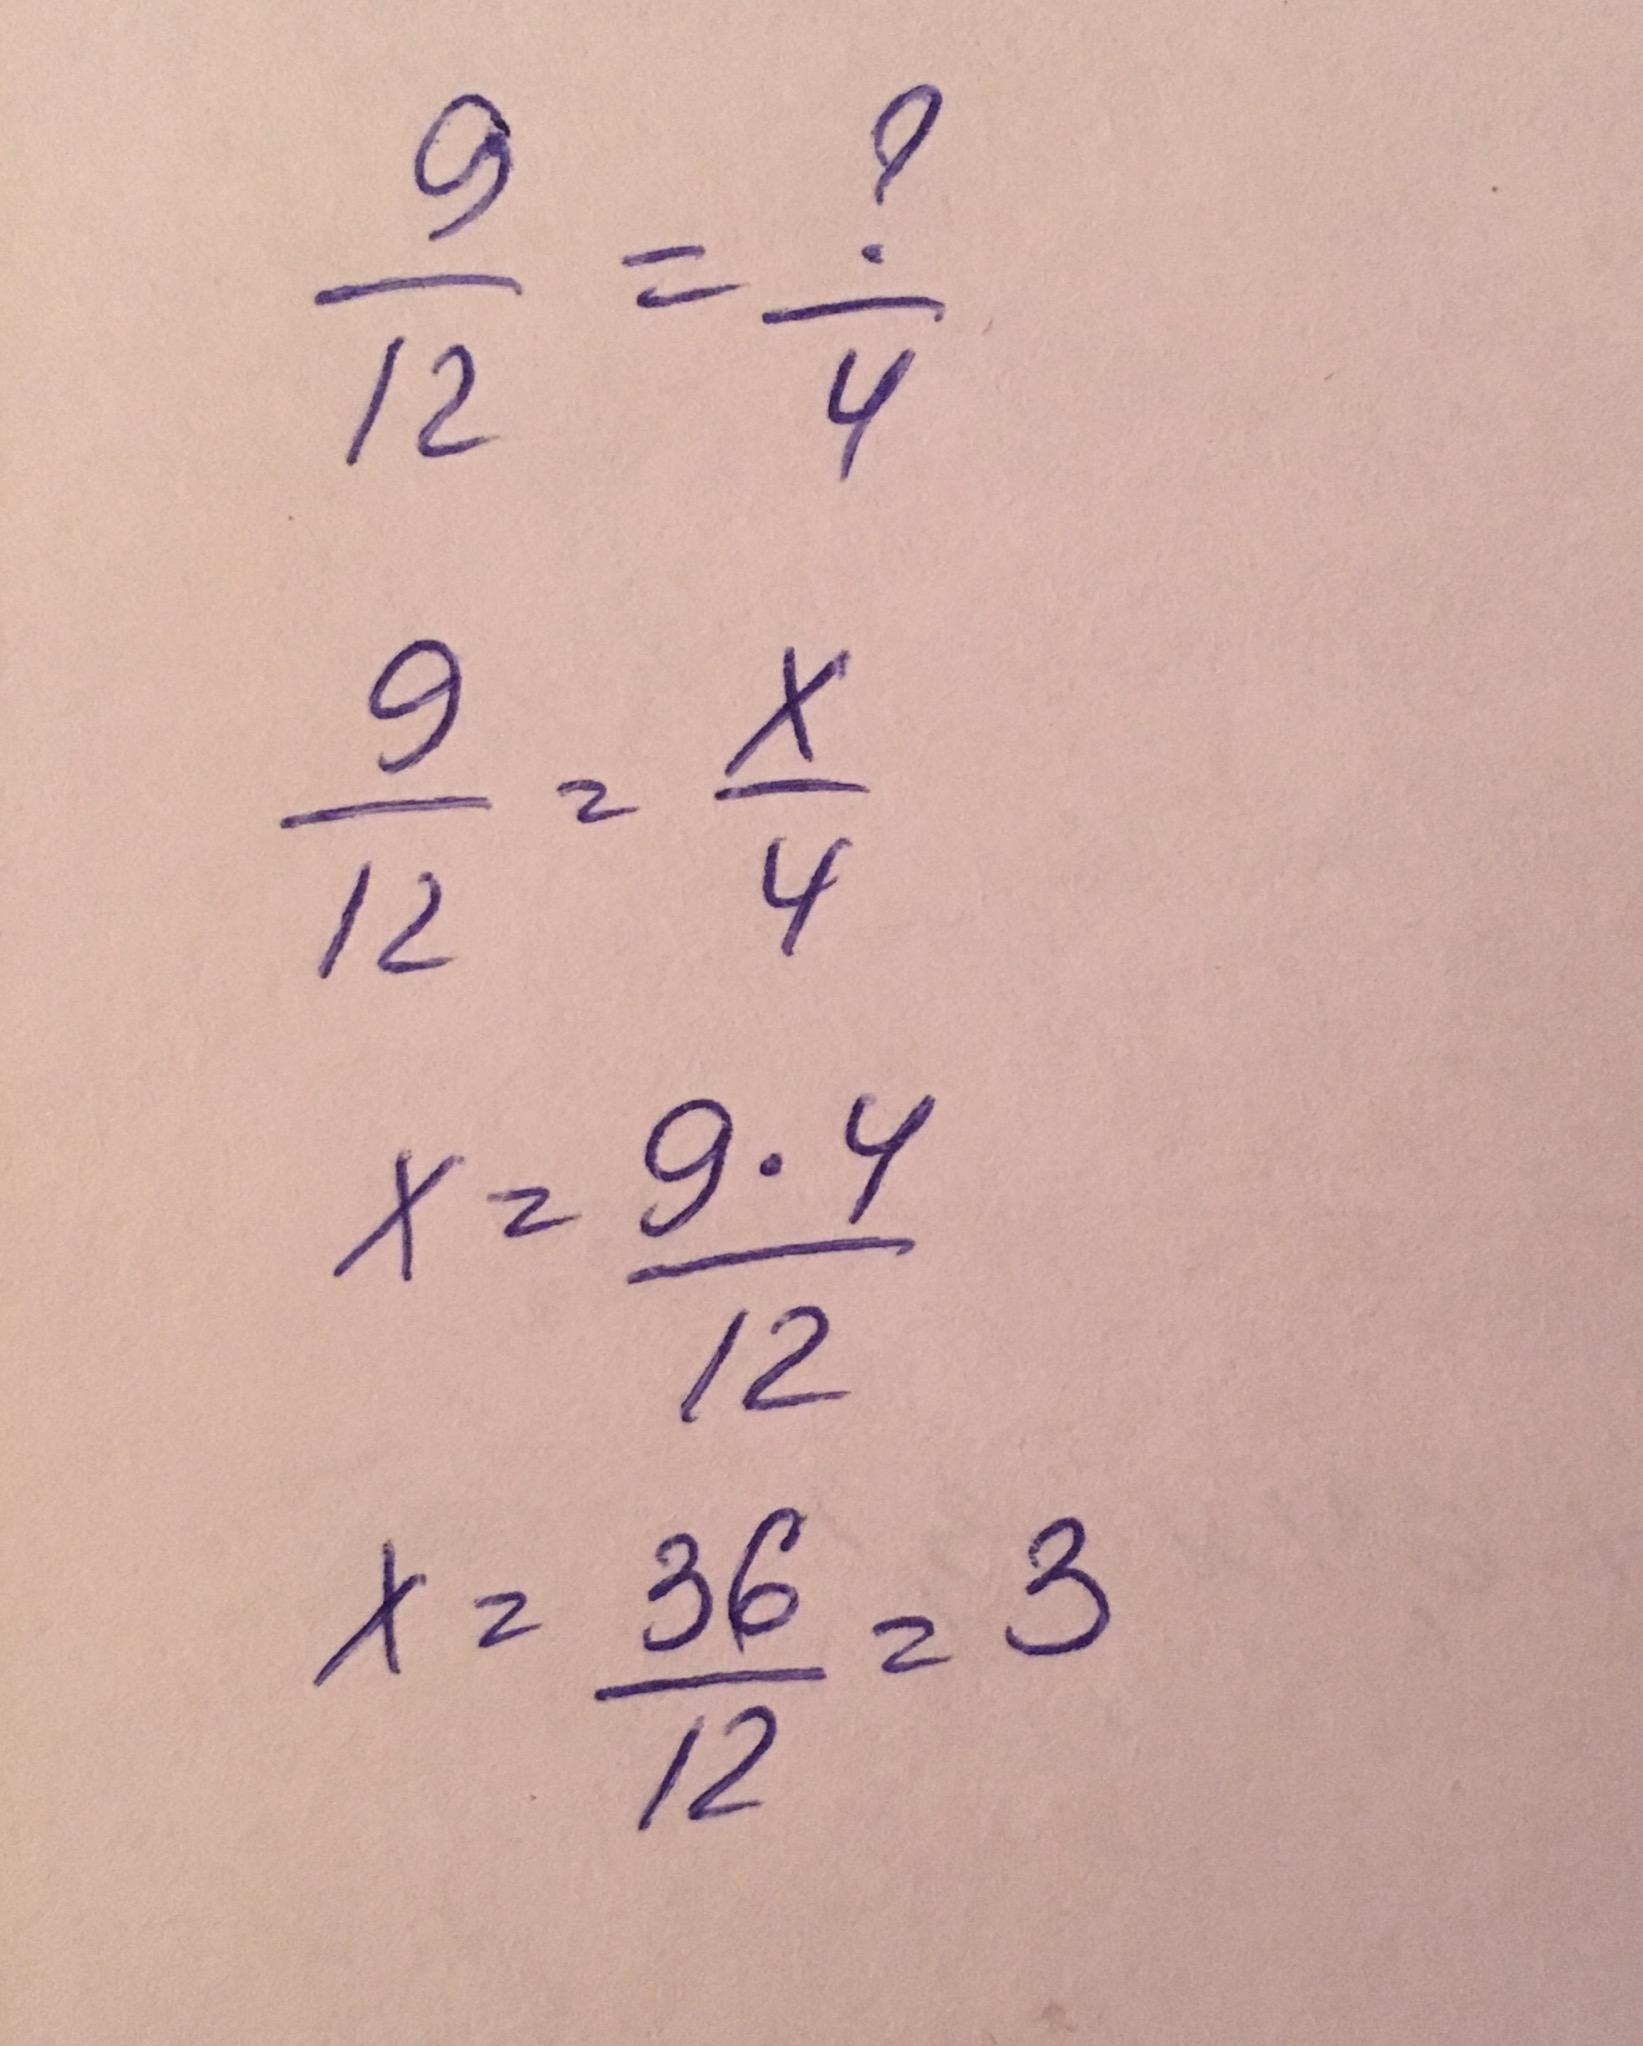 9/12 = ?/4
9/12 = x/4
x = 9·4/12
x = 36/12 = 3